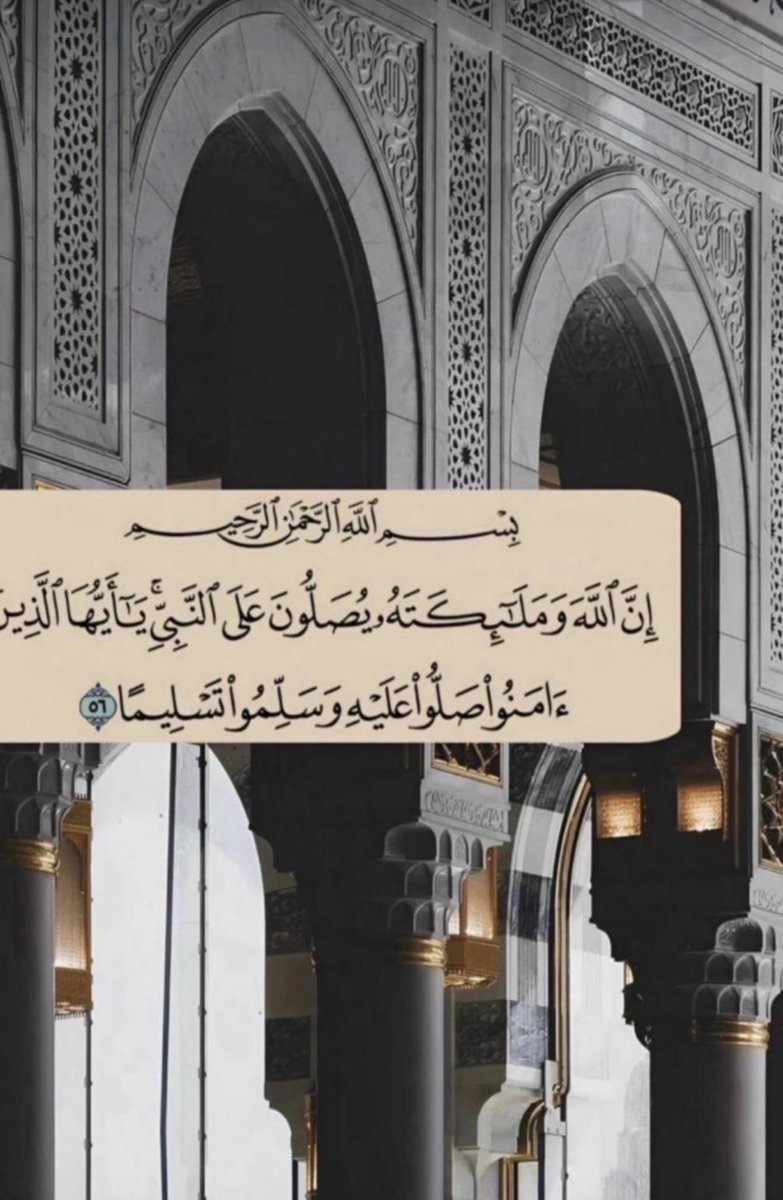 بِسْمِ ٱللَّهِ ٱلرَّحْمَٰنِ ٱلرَّحِيمِ
إِنَّ ٱللَّهَ وَمَلَٰٓئِكَتَهُۥ يُصَلُّونَ عَلَى ٱلنَّبِيِّۚ يَٰٓأَيُّهَا ٱلَّذِينَ
ءَامَنُوا۟ صَلُّوا۟ عَلَيْهِ وَسَلِّمُوا۟ تَسْلِيمًا ٥٦